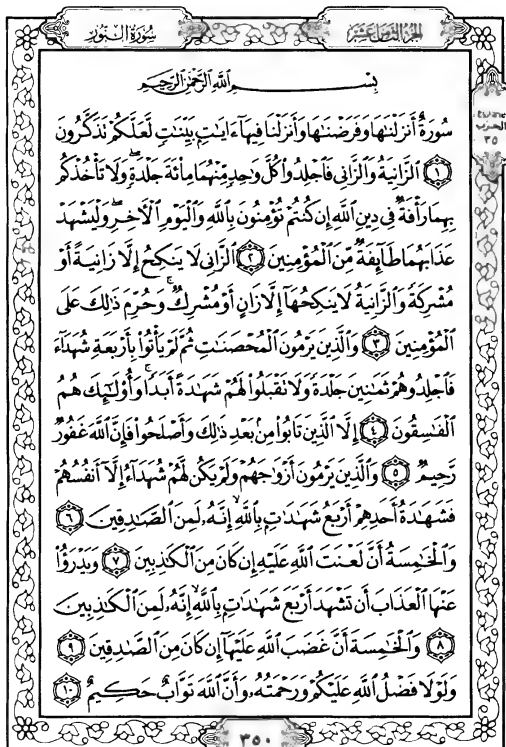 سُورَةُ النُّورِ الجُزْءُ الثَّامِنَ عَشَرَ
بِسْمِ اللَّهِ الرَّحْمَٰنِ الرَّحِيمِ
سُورَةٌ أَنزَلْنَٰهَا وَفَرَضْنَٰهَا وَأَنزَلْنَا فِيهَآ ءَايَٰتٍۭ بَيِّنَٰتٍ لَّعَلَّكُمْ تَذَكَّرُونَ
١ ٱلزَّانِيَةُ وَٱلزَّانِى فَٱجْلِدُوا۟ كُلَّ وَٰحِدٍ مِّنْهُمَا مِا۟ئَةَ جَلْدَةٍ ۖ وَلَا تَأْخُذْكُم
بِهِمَا رَأْفَةٌ فِى دِينِ ٱللَّهِ إِن كُنتُمْ تُؤْمِنُونَ بِٱللَّهِ وَٱلْيَوْمِ ٱلْءَاخِرِ ۖ وَلْيَشْهَدْ
عَذَابَهُمَا طَآئِفَةٌ مِّنَ ٱلْمُؤْمِنِينَ ٢ ٱلزَّانِى لَا يَنكِحُ إِلَّا زَانِيَةً أَوْ
مُشْرِكَةً وَٱلزَّانِيَةُ لَا يَنكِحُهَآ إِلَّا زَانٍ أَوْ مُشْرِكٌ ۚ وَحُرِّمَ ذَٰلِكَ عَلَى
ٱلْمُؤْمِنِينَ ٣ وَٱلَّذِينَ يَرْمُونَ ٱلْمُحْصَنَٰتِ ثُمَّ لَمْ يَأْتُوا۟ بِأَرْبَعَةِ شُهَدَآءَ
فَٱجْلِدُوهُمْ ثَمَٰنِينَ جَلْدَةً وَلَا تَقْبَلُوا۟ لَهُمْ شَهَٰدَةً أَبَدًا ۚ وَأُو۟لَٰٓئِكَ هُمُ
ٱلْفَٰسِقُونَ ٤ إِلَّا ٱلَّذِينَ تَابُوا۟ مِنۢ بَعْدِ ذَٰلِكَ وَأَصْلَحُوا۟ فَإِنَّ ٱللَّهَ غَفُورٌ
رَّحِيمٌ ٥ وَٱلَّذِينَ يَرْمُونَ أَزْوَٰجَهُمْ وَلَمْ يَكُن لَّهُمْ شُهَدَآءُ إِلَّآ أَنفُسُهُمْ
فَشَهَٰدَةُ أَحَدِهِمْ أَرْبَعُ شَهَٰدَٰتٍۭ بِٱللَّهِ ۙ إِنَّهُۥ لَمِنَ ٱلصَّٰدِقِينَ ٦
وَٱلْخَٰمِسَةُ أَنَّ لَعْنَتَ ٱللَّهِ عَلَيْهِ إِن كَانَ مِنَ ٱلْكَٰذِبِينَ ٧ وَيَدْرَؤُا۟
عَنْهَا ٱلْعَذَابَ أَن تَشْهَدَ أَرْبَعَ شَهَٰدَٰتٍۭ بِٱللَّهِ ۙ إِنَّهُۥ لَمِنَ ٱلْكَٰذِبِينَ
٨ وَٱلْخَٰمِسَةَ أَنَّ غَضَبَ ٱللَّهِ عَلَيْهَآ إِن كَانَ مِنَ ٱلصَّٰدِقِينَ ٩
وَلَوْلَا فَضْلُ ٱللَّهِ عَلَيْكُمْ وَرَحْمَتُهُۥ وَأَنَّ ٱللَّهَ تَوَّابٌ حَكِيمٌ ١٠
الحزب
٣٥
٣٥٠